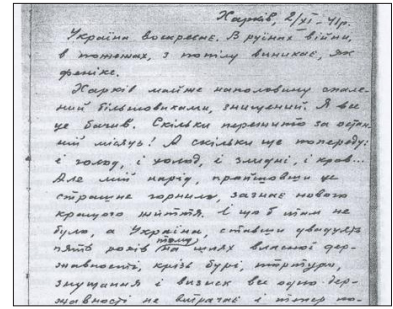 Харків, 2/XI-41р.
Україна воскресне. В руїнах війни,
в пожежах, з попілу виникає, як
фенікс.
Харків майже наполовину спале-
ний більшовиками, знищений. Я все
це бачив. Скільки пережито за остан-
ній місяць! А скільки ще попереду:
і голод, і холод, і злидні, і кров...
Але мій нарід, пройшовши це
страшне горнило, зазнає нового
кращого життя. І що б там не
було, а Україна, ставши двадцять
пять років тому на шлях власної дер-
жавності, крізь бурі, тортури,
знущання і визиск все одно дер-
жавності не втрачає і тепер по-